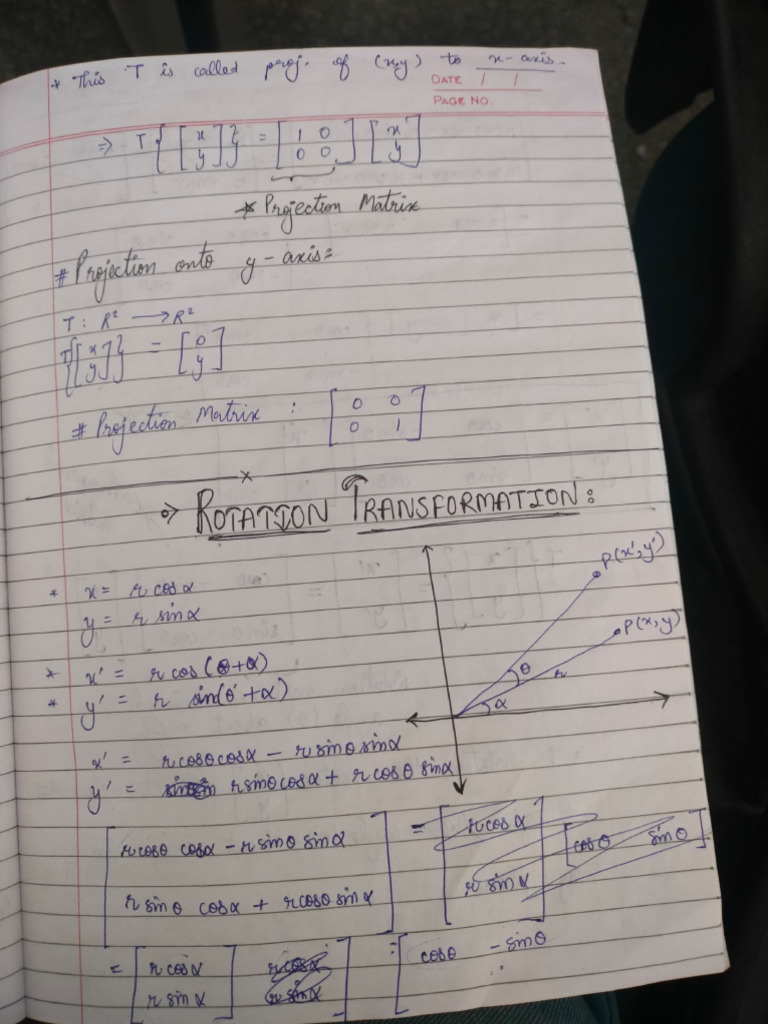 * This T is called proj. of (x,y) to x-axis.
DATE / /
PAGE NO.
⇒ T{[x y]} = [1 0 0 0] [x y]
* Projection Matrix
# Projection onto y-axis=
T: R² ⟶ R²
T{[x y]} = [0 y]
# Projection Matrix : [0 0 0 1]
x
⇒ ROTATION TRANSFORMATION:
* x = r cosα
y = r sinα
* x' = r cos(θ+α)
* y' = r sin(θ+α)
P(x',y')
P(x,y)
θ
r
α
x' = rcosθcosα − rsinθsinα
y' = rsinθcosα + rcosθ sinα
[rcosθ cosα − rsinθ sinα = [rcosα
r sinθ cosα + rcosθ sinα] r sinα] [cosθ sinθ]
= [r cosα r sinα] [rcosα rsinα] = [cosθ −sinθ